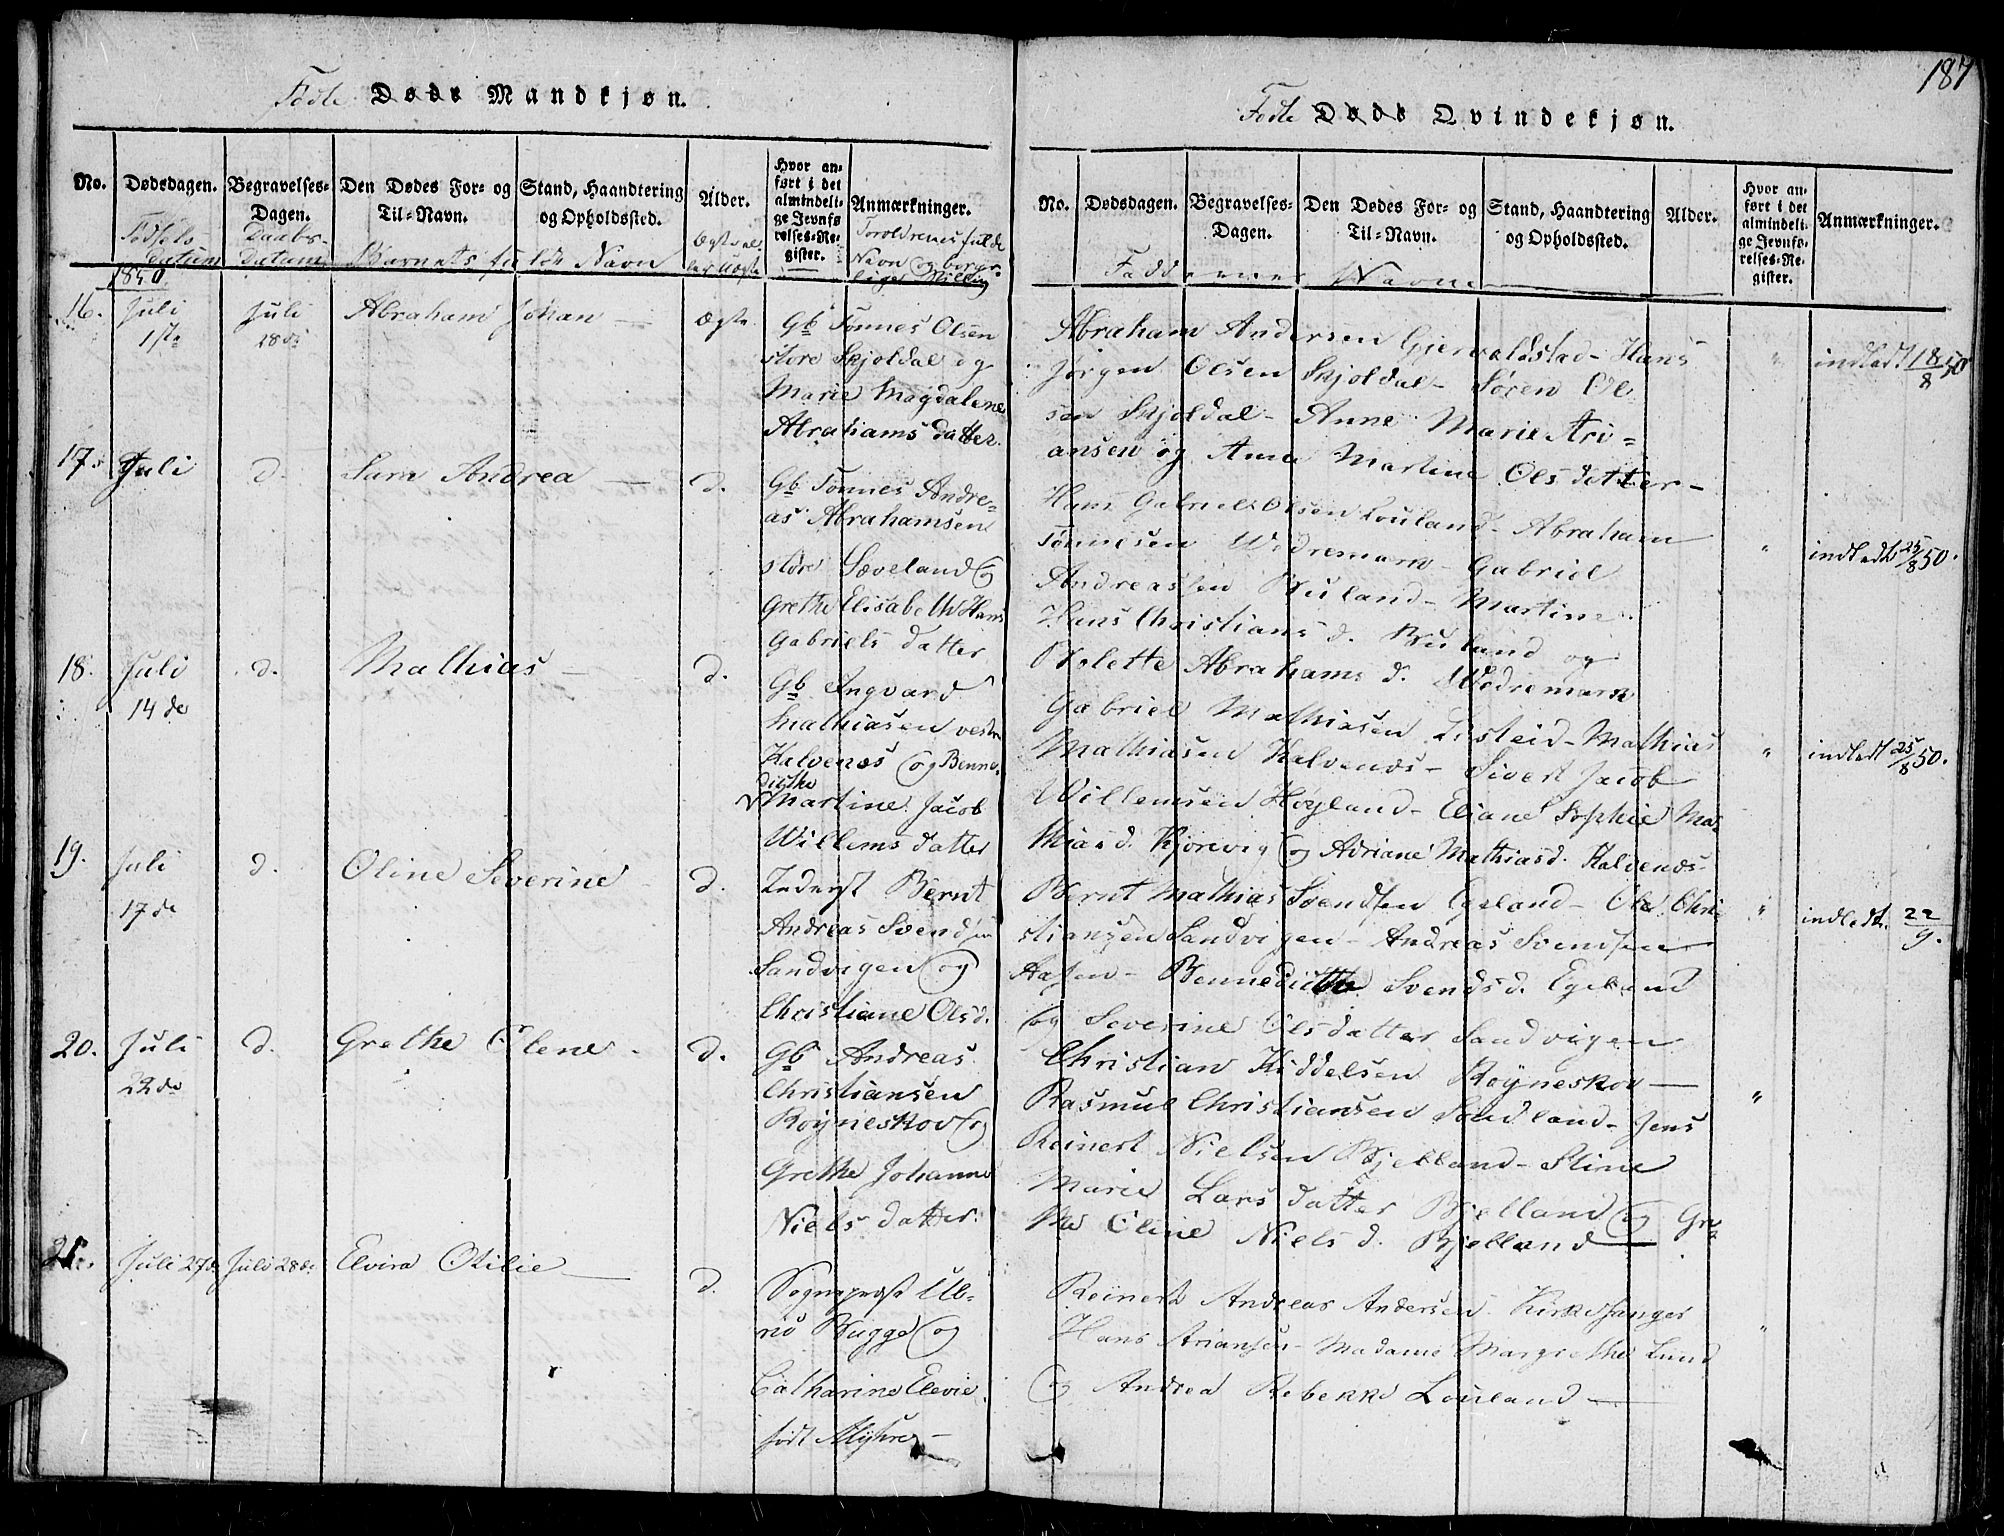 187
Fødte Døde Mandkjøn.
No. Dødsdagen. Begravelses-Dagen. Den Dødes For- og Til-Navn. Stand, Haandtering og Opholdssted. Alder. Hvor anført i det almindelige Jevnførelses-Register. Anmærkninger.
Fødsels Datum Daabs-Datum Barnets fulde Navn Ægte el. ler Uægte Forældrenes fulde Navn og borgerlige Stilling
1850.
16. Juli Juli Abraham Johan — Ægte. Gb Tønnes Olsen
1ste 28de store Skjoldal og
Marie Magdalene
Abrahams datter.
17. Juli d. Sara Andrea — d. Gb Tønnes Andre-
as Abrahamsen
store Sæveland og
Grethe Elisabeth Hans
Gabriels datter
18. Juli d. Mathias — d. Gb Ingvard
14de Mathiasen vestre
Kalvenæs og Benne-
dikte
Martine Jacob
Willems datter
19. Juli d. Oline Severine d. Inderst Bernt
17de Andreas Svendsen
Sandvigen og
Christiane Olsd.
20. Juli d. Grethe Elene d. Gb Andreas
22de Christiansen
Røyneskov og
Grethe Johanne
Niels datter.
21. Juli 27de Juli 28de Elvira Otilie — d. Sognepræst Ul-
rik Bugge og
Catharine Elevie
født Myhre —
Fødte Døde Qvindekjøn.
No. Dødsdagen. Begravelses-Dagen. Den Dødes For- og Til-Navn. Stand, Haandtering og Opholdssted. Alder. Hvor anført i det almindelige Jevnførelses-Register. Anmærkninger.
Faddernes Navne
Abraham Andersen Gjervoldstad - Hans
Jørgen Olsen Skjoldal - Søren Ol " indledt 18/8 50
sen Skjoldal - Anne Marie Ari-
ansen og Anne Martine Olsdatter -
Hans Gabriel Olsen Louland - Abraham
Tønnesen Wedremark - Gabriel " indledt 25/8 50.
Andreassen Buland - Martine
Hans Christians d. Buland og
Bolette Abrahams d. Wedremark
Gabriel Mathiasen - Mathias
Mathiasen Kalvenæs - Sivert Jacob " indledt 25/8 50.
Willemsen Høyland - Eliane Sophie Ma-
thias d. Kjørevig og Adriane Mathiasd. Kalvenæs -
Bernt Mathias Svendsen Egeland - Ole Chri " indledt. 22/9.
stiansen Sandvigen - Andreas Svendsen
Aasen - Bennedicte Svendsd. Egeland
og Severine Olsdatter Sandvigen
Christian Kiddelsen Røyneskov —
Rasmus Christiansen Sandland - Jens "
Reinert Nielsen Bjelland - Stine
Marie Lars datter Bjelland og Gre-
the Eline Niels d. Bjelland —
Reinert Andreas Andersen - Kirkesanger
Hans Ariansen - Madame Margrethe Lund "
og Andrea Rebekka Louland —